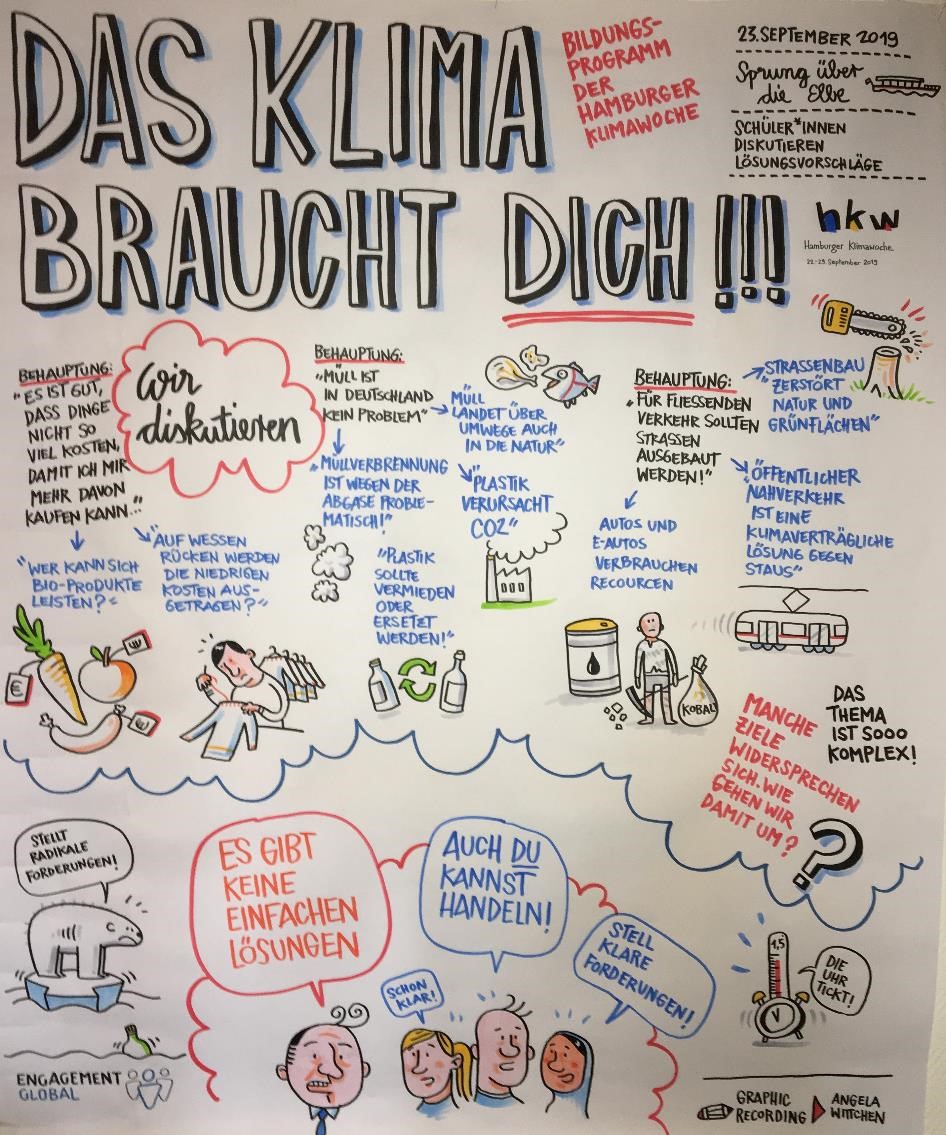 DAS KLIMA
BRAUCHT DICH!!!
BILDUNGS-
PROGRAMM
DER
HAMBURGER
KLIMAWOCHE
23.SEPTEMBER 2019
Sprung über
die Elbe
SCHÜLER*INNEN
DISKUTIEREN
LÖSUNGSVORSCHLÄGE
hkw
Hamburger Klimawoche
22.-29. September 2019
wir
diskutieren
BEHAUPTUNG:
"ES IST GUT,
DASS DINGE
NICHT SO
VIEL KOSTEN,
DAMIT ICH MIR
MEHR DAVON
KAUFEN KANN..."
"WER KANN SICH
BIO-PRODUKTE
LEISTEN?"
"AUF WESSEN
RÜCKEN WERDEN
DIE NIEDRIGEN
KOSTEN AUS-
GETRAGEN?"
€
BEHAUPTUNG:
"MÜLL IST
IN DEUTSCHLAND
KEIN PROBLEM"
"MÜLL
LANDET ÜBER
UMWEGE AUCH
IN DIE NATUR"
"MÜLLVERBRENNUNG
IST WEGEN DER
ABGASE PROBLE-
MATISCH!"
"PLASTIK
VERURSACHT
CO2"
"PLASTIK
SOLLTE
VERMIEDEN
ODER
ERSETZT
WERDEN!"
BEHAUPTUNG:
"FÜR FLIESSENDEN
VERKEHR SOLLTEN
STRASSEN
AUSGEBAUT
WERDEN!"
"STRASSENBAU
ZERSTÖRT
NATUR UND
GRÜNFLÄCHEN"
"ÖFFENTLICHER
NAHVERKEHR
IST EINE
KLIMAVERTRÄGLICHE
LÖSUNG GEGEN
STAUS"
AUTOS UND
E-AUTOS
VERBRAUCHEN
RECOURCEN
KOBALT
MANCHE
ZIELE
WIDERSPRECHEN
SICH. WIE
GEHEN WIR
DAMIT UM?
DAS
THEMA
IST SOOO
KOMPLEX!
?
STELLT
RADIKALE
FORDERUNGEN!
ES GIBT
KEINE
EINFACHEN
LÖSUNGEN
AUCH DU
KANNST
HANDELN!
SCHON
KLAR!
STELL
KLARE
FORDERUNGEN!
1,5
DIE
UHR
TICKT!
ENGAGEMENT
GLOBAL
GRAPHIC
RECORDING
ANGELA
WITTCHEN